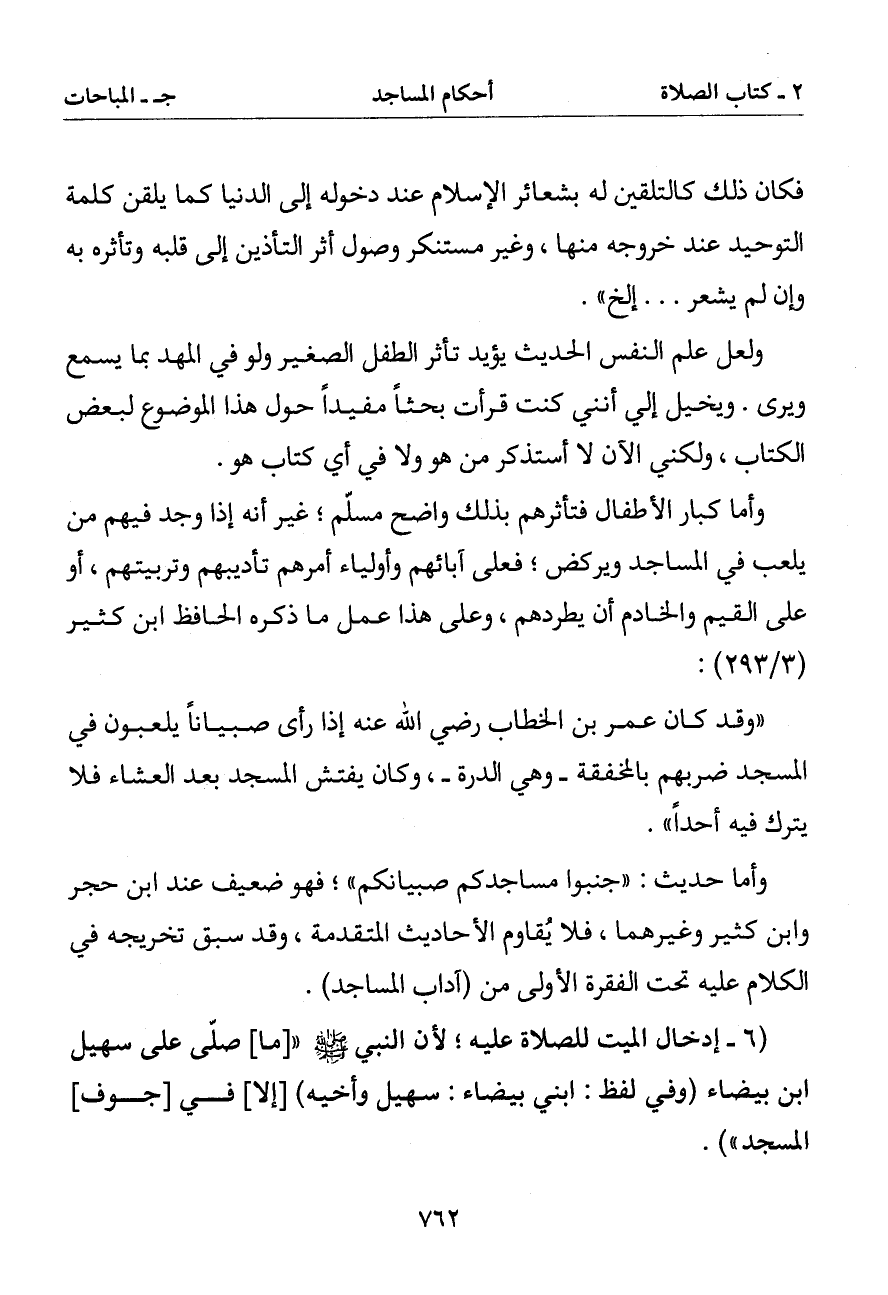 ٢ ـ كتاب الصلاة أحكام المساجد جـ ـ المباحات
فكان ذلك كالتلقين له بشعائر الإسلام عند دخوله إلى الدنيا كما يلقن كلمة
التوحيد عند خروجه منها ، وغير مستنكر وصول أثر التأذين إلى قلبه وتأثره به
وإن لم يشعر . . . إلخ» .
ولعل علم النفس الحديث يؤيد تأثر الطفل الصغير ولو في المهد بما يسمع
ويرى . ويخيل إلي أنني كنت قرأت بحثاً مفيداً حول هذا الموضوع لبعض
الكتاب ، ولكني الآن لا أستذكر من هو ولا في أي كتاب هو .
وأما كبار الأطفال فتأثرهم بذلك واضح مسلّم ؛ غير أنه إذا وجد فيهم من
يلعب في المساجد ويركض ؛ فعلى آبائهم وأولياء أمرهم تأديبهم وتربيتهم ، أو
على القيم والخادم أن يطردهم ، وعلى هذا عمل ما ذكره الحافظ ابن كثير
(٢٩٣/٣) :
«وقد كان عمر بن الخطاب رضي الله عنه إذا رأى صبياناً يلعبون في
المسجد ضربهم بالمخفقة ـ وهي الدرة ـ ، وكان يفتش المسجد بعد العشاء فلا
يترك فيه أحداً» .
وأما حديث : «جنبوا مساجدكم صبيانكم» ؛ فهو ضعيف عند ابن حجر
وابن كثير وغيرهما ، فلا يُقاوم الأحاديث المتقدمة ، وقد سبق تخريجه في
الكلام عليه تحت الفقرة الأولى من (آداب المساجد) .
(٦ ـ إدخال الميت للصلاة عليه ؛ لأن النبي ﷺ «[ما] صلّى على سهيل
ابن بيضاء (وفي لفظ : ابني بيضاء : سهيل وأخيه) [إلا] فــي [جــوف]
المسجد») .
٧٦٢